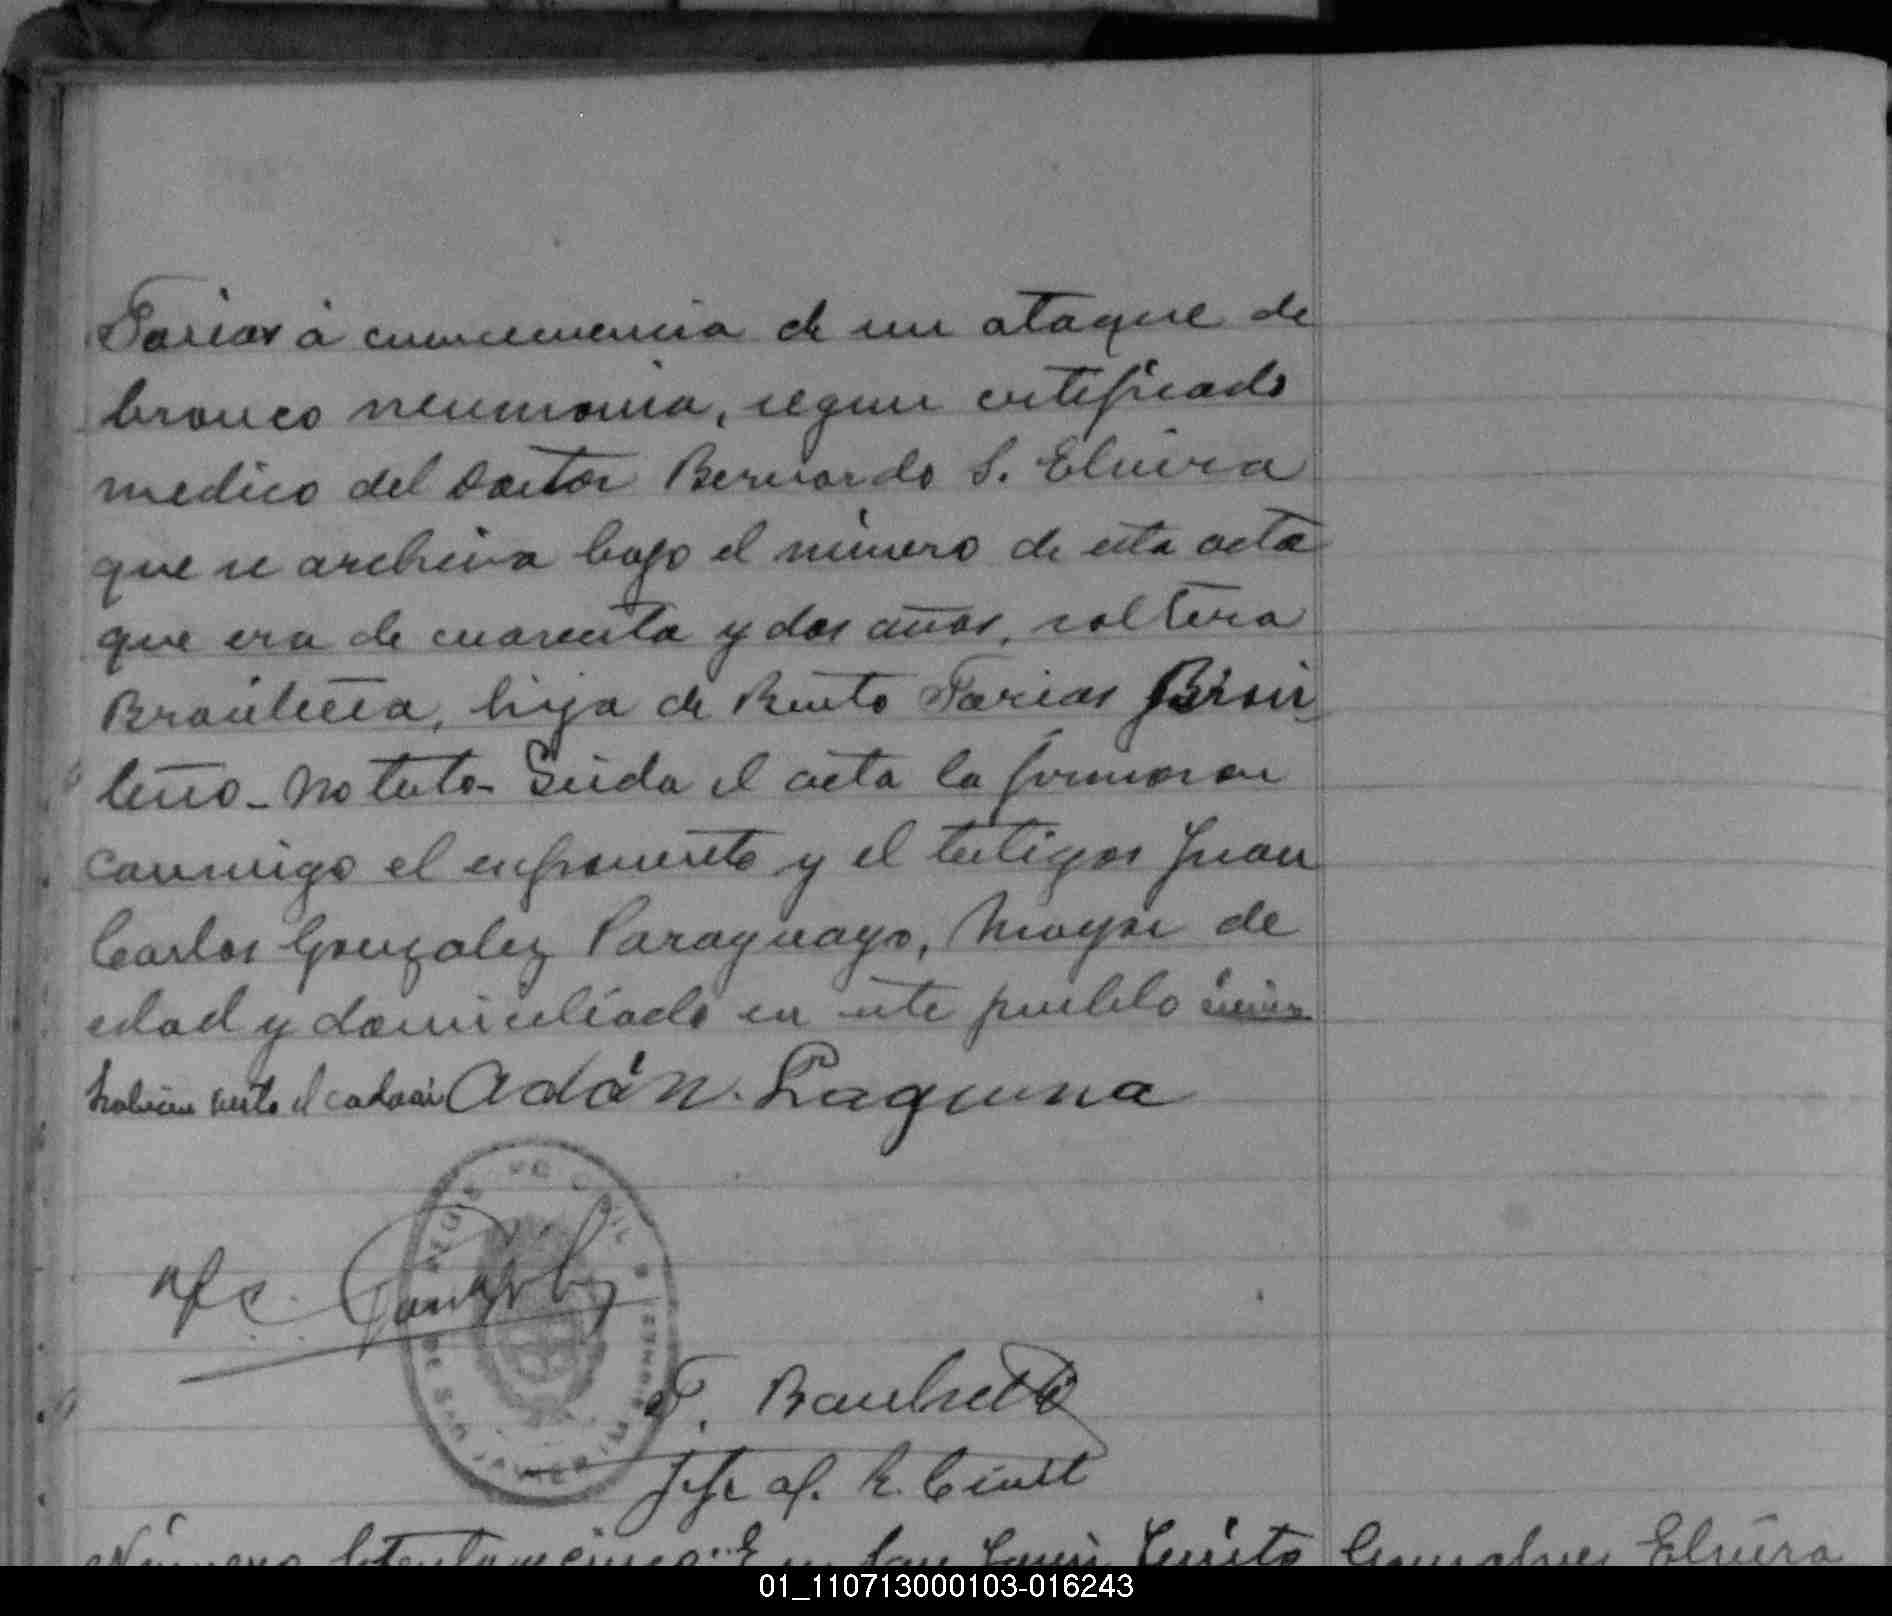 Farias á consecuencia de un ataque de
bronco neumonia, segun certificado
medico del Doctor Bernardo S. Elvira
que se archiva bajo el número de esta acta
que era de cuarenta y dos años, soltera
Brasileña, hija de Bento Farias Brasi
leño - No testo - Leida el acta la firmaron
conmigo el exponente y el testigos Juan
Carlos Gonzalez Paraguayo, Mayor de
edad y domiciliado en este pueblo
habien visto el cadaver Adán. Laguna
REGISTRO CIVIL
DE SAN JAVIER MISIONES
J C. Gonzalez
Jefe of. R. Civil
Número setentaicinco En San Javier Gonsalves Elvira
01_110713000103-016243